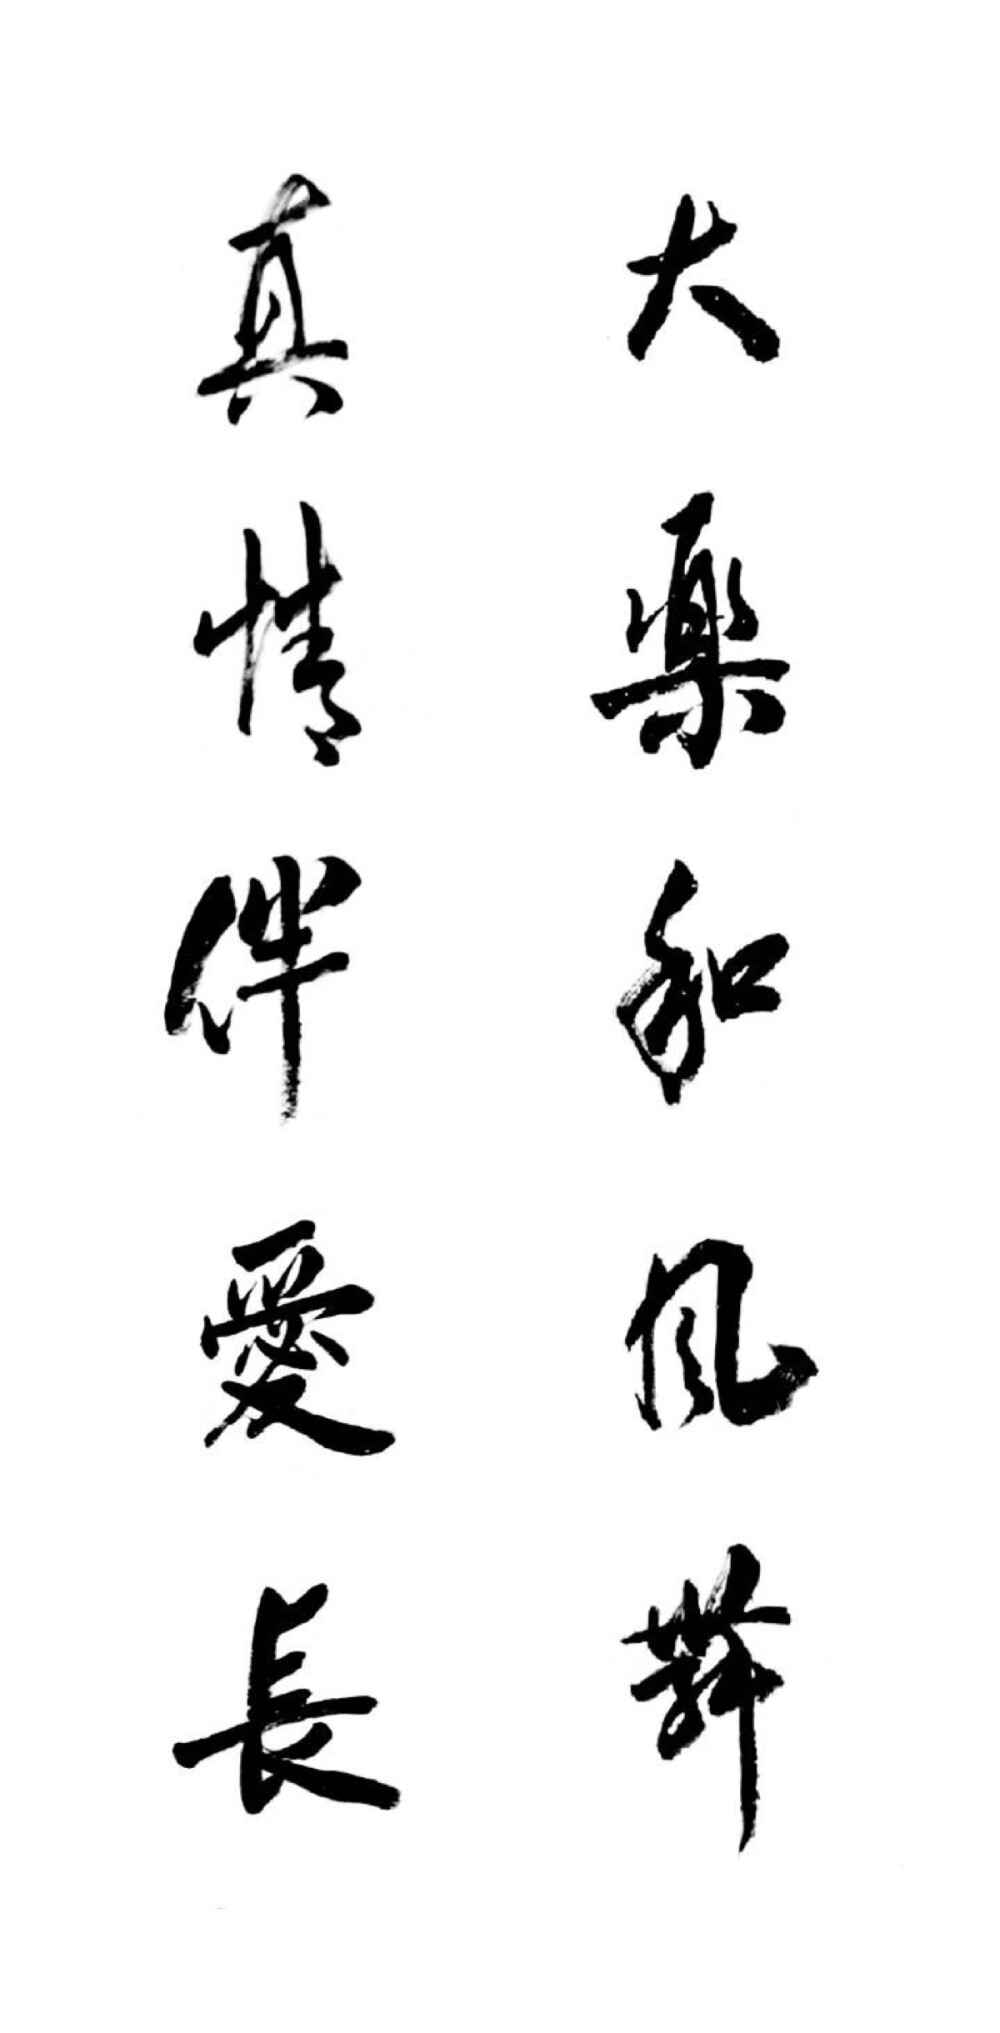 大樂和風舞
真情伴愛長